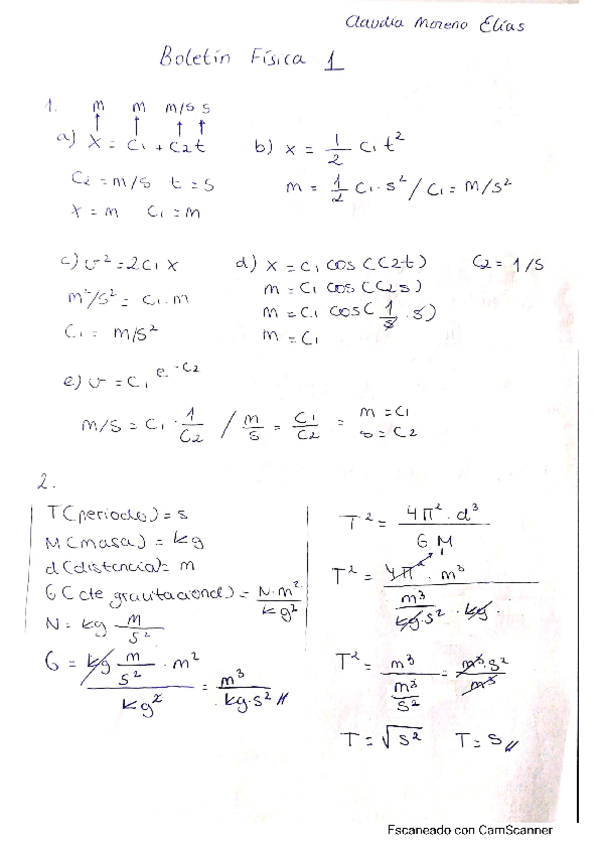 Claudia Moreno Elías
Boletín Física 1
1. m m m/s s
↑ ↑ ↑ ↑
a) x = c₁ + c₂t
C₂ = m/s t = s
x = m C₁ = m
b) x = 1/2 c₁ t²
m = 1/2 c₁ · s² / c₁ = m/s²
c) v² = 2c₁x
m²/s² = c₁ · m
C₁ = m/s²
d) x = c₁ cos(c₂t) C₂ = 1/s
m = c₁ cos(c₂s)
m = c₁ cos(1/s · s)
m = c₁
e) v = c₁ e^-c₂
m/s = c₁ · 1/c₂ / m/s = c₁/c₂ = m = c₁
s = c₂
2.
T(periodo) = s
M(masa) = kg
d(distancia) = m
G(cte gravitacional) = N·m²/kg²
N = kg m/s²
G = kg m/s² · m² / kg² = m³/kg·s² //
T² = 4π² · d³ / G M
T² = 4π² · m³ / m³/kg·s² · kg
T² = m³ / m³/s² = m³·s²/m³
T = √s² T = s //
Escaneado con CamScanner